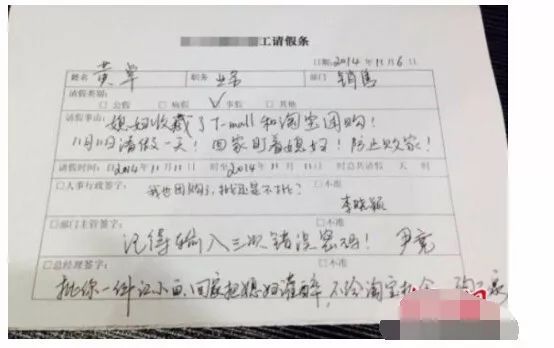 工请假条
日期:2014年11月6日
姓名 黄军 职务 业务 部门 销售
请假类别:
□公假 □病假 ☑事假 □其他
请假事由: 媳妇收藏了T-mall和淘宝团购!
11月11日请假一天! 回家盯着媳妇! 防止败家!
请假时间: 自2014年11月11日 时至2014年11月11日 时总共请假 天 时
□人事行政签字: □不准
我也团购了,批还是不批? 李晓颖
□部门主管签字: □不准
记得输入三次错误密码! 尹亮
□总经理签字: □不准
批你一件江小白,回家把媳妇灌醉,不给淘宝机会